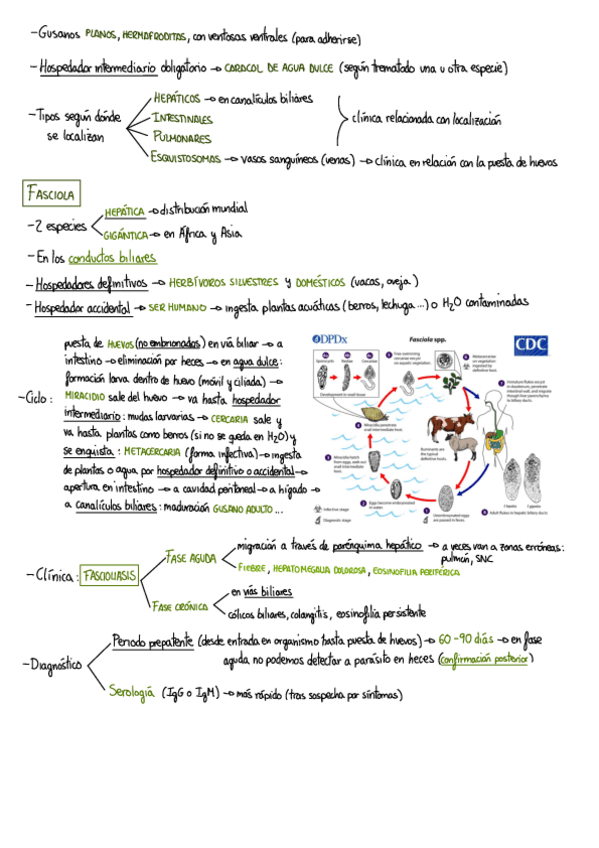 - Gusanos PLANOS, HERMAFRODITAS, con ventosas ventrales (para adherirse)
- Hospedador intermediario obligatorio → CARACOL DE AGUA DULCE (según trematodo una u otra especie)
- Tipos según donde se localizan
HEPÁTICOS → en canalículos biliares
INTESTINALES
PULMONARES
clínica relacionada con localización
ESQUISTOSOMAS → vasos sanguíneos (venas) → clínica en relación con la puesta de huevos
FASCIOLA
- 2 especies
HEPÁTICA → distribución mundial
GIGÁNTICA → en África y Asia
- En los conductos biliares
- Hospedadores definitivos → HERBÍVOROS SILVESTRES y DOMÉSTICOS (vacas, oveja)
- Hospedador accidental → SER HUMANO → ingesta plantas acuáticas (berros, lechuga ...) o H2O contaminadas
- Ciclo:
puesta de HUEVOS (no embrionados) en vía biliar → a
intestino → eliminación por heces → en agua dulce:
formación larva dentro de huevo (móvil y ciliada) →
MIRACIDIO sale del huevo → va hasta hospedador
intermediario: mudas larvarias → CERCARIA sale y
va hasta plantas como berros (si no se queda en H2O) y
se enquista: METACERCARIA (forma infectiva) → ingesta
de plantas o agua por hospedador definitivo o accidental →
apertura en intestino → a cavidad peritoneal → a hígado →
a canalículos biliares: maduración GUSANO ADULTO ...
DPDx
Fasciola spp.
CDC
Free-swimming cercariae encyst on aquatic vegetation.
Development in snail tissue
Infective stage
Diagnostic stage
Unembryonated eggs are passed in feces.
Adult flukes in hepatic biliary ducts
- Clínica: FASCIOLIASIS
FASE AGUDA
migración a través de parénquima hepático → a veces van a zonas erróneas:
pulmón, SNC
FIEBRE, HEPATOMEGALIA DOLOROSA, EOSINOFILIA PERIFÉRICA
FASE CRÓNICA
en vías biliares
cólicos biliares, colangitis, eosinofilia persistente
- Diagnóstico
Periodo prepatente (desde entrada en organismo hasta puesta de huevos) → 60-90 días → en fase
aguda no podemos detectar a parásito en heces (confirmación posterior)
Serología (IgG o IgM) → más rápido (tras sospecha por síntomas)